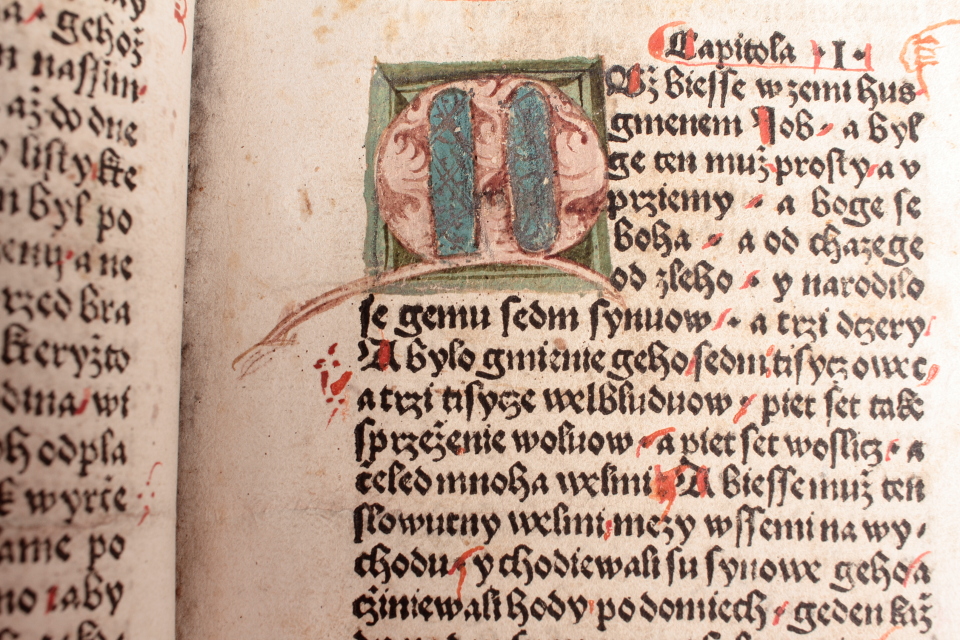 gehož
nassim
až do dne
listy kte
byl po
a ne
przed bra
kteryžto
dina wi
odpla
k wyrče
po
aby
Capitola I
Už biesse w zemi hus
gmenem Job a byl
ge ten muž prosty a v
prziemy a boge se
boha a od chazege
od zleho y narodilo
se gemu sedm synuow a trzi dczery
A bylo gmienie geho sedm tisycz owec
a trzi tisycze welbluduow piet set take
sprzeženie woluow a piet set woslicz a
czeled mnoha welmi A biesse muž ten
slowutny welmi mezy wssemi na wy
chodu y chodiewali su synowe geho a
cziniewali hody po domiech geden kaž